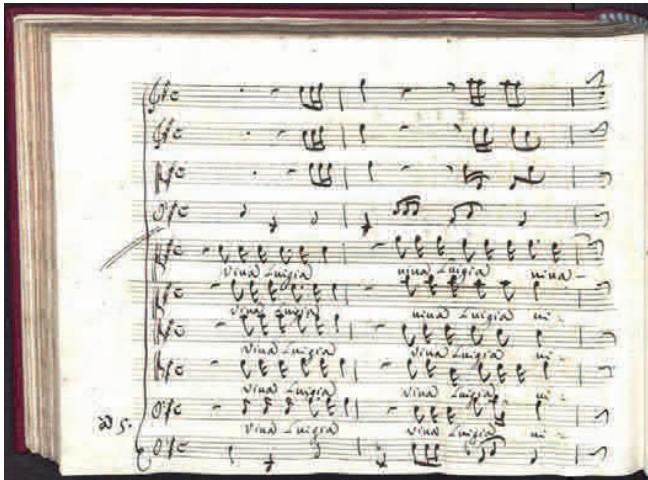 Viua Luigia uiua Luigia uiua -
Viua Luigia uiua Luigia ui -
Viua Luigia Viua Luigia ui -
Viua Luigia Viua Luigia ui -
à 5.
Viua Luigia Viua Luigia ui -